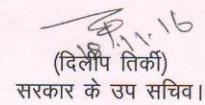 18.11.16
(दिलीप तिर्की)
सरकार के उप सचिव।